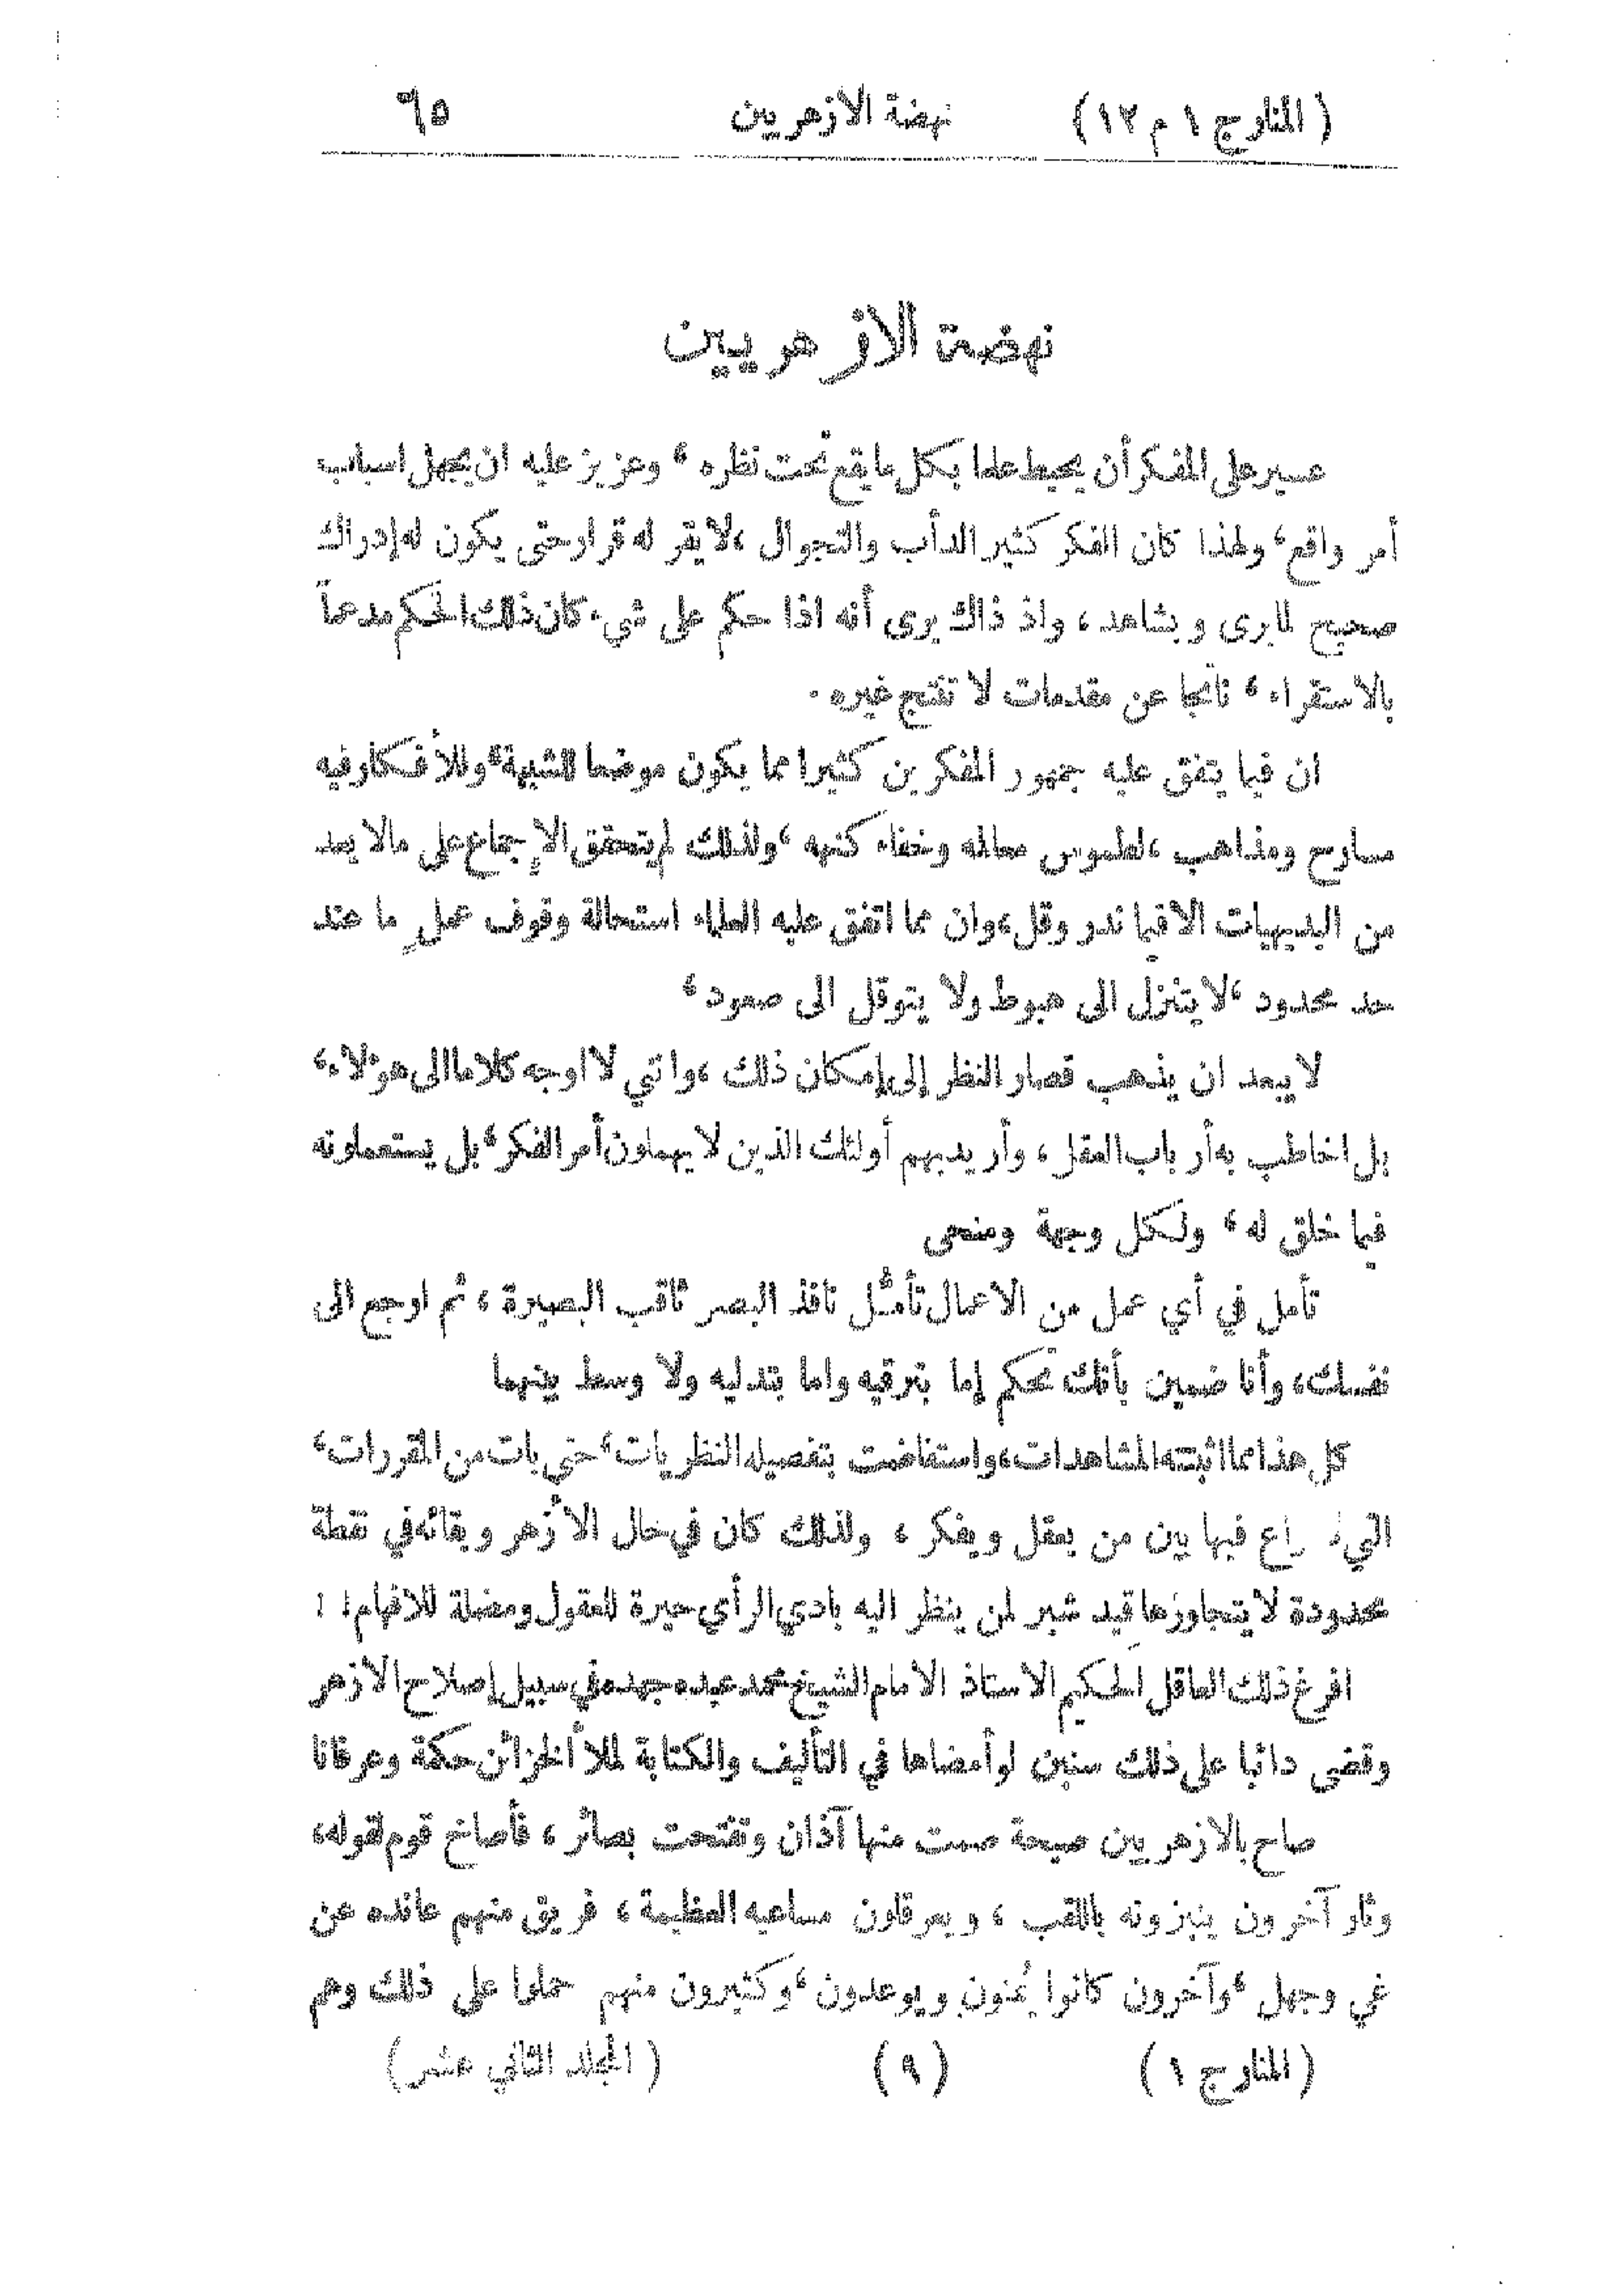 (المنار ج ١ م ١٢) نهضة الازهريين ٦٥
نهضة الازهريين
عسير على المفكر أن يحيط علما بكل ما يقع تحت نظره، وعزيز عليه ان يجهل اسباب
أمر واقع، ولهذا كان الفكر كثير الدأب والتجوال، لا يقر له قرار حتى يكون له إدراك
صحيح لما يرى ويشاهد، واذ ذاك يرى أنه اذا حكم على شيء كان ذلك الحكم مدعماً
بالاستقراء، ناتجا عن مقدمات لا تنتج غيره.
ان فيما يتفق عليه جمهور المفكرين كثيرا مما يكون موضعا للشبهة، وللأفكار فيه
مسارح ومذاهب، لطموس معالمه وخفاء كنهه، ولذلك لم يتحقق الإجماع على مالا يعد
من البديهيات الا فيما ندر وقل، وان مما اتفق عليه العلماء استحالة وقوف عملٍ ما عند
حد محدود، لا يتنزل الى هبوط ولا يتوقل الى صعود،
لا يبعد ان يذهب قصار النظر إلى إمكان ذلك، واتي لا اوجه كلاما الى هؤلاء،
بل اخاطب به أرباب العقل، وأريد بهم أولئك الذين لا يهملون أمر الفكر، بل يستعملونه
فيما خلق له، ولكل وجهة ومنحى
تأمل في أي عمل من الاعمال تأمُّل نافذ البصر ثاقب البصيرة، ثم ارجع الى
نفسك، وأنا ضمين بأنك تحكم إما بترقيه واما بتدليه ولا وسط بينهما
كل هذا مما اثبتته المشاهدات، واستفاضت بتفصيله النظريات، حتى بات من المقررات،
التي فيها بين من يعقل ويفكر، ولذلك كان في حال الأزهر وبقائه في نقطة
محدودة لا يتجاوزها قيد شبر لمن ينظر اليه بادي الرأي حيرة للعقول ومضلة للافهام!!
افرغ ذلك العاقل الحكيم الاستاذ الامام الشيخ محمد عبده جهده في سبيل إصلاح الازهر
وقضى دائبا على ذلك سنين لو أمضاها في التأليف والكتابة لملأ الخزائن حكمة وعرفانا
صاح بالازهريين صيحة صمت منها آذان وتفتحت بصائر، فأصاخ قوم لقوله،
وثار آخرون ينبزونه باللقب، ويعرقلون مساعيه العظيمة، فريق منهم عانده عن
غي وجهل، وآخرون كانوا يُمنون ويوعدون، وكثيرون منهم حملوا على ذلك وهم
(المنار ج ١) (٩) (المجلد الثاني عشر)